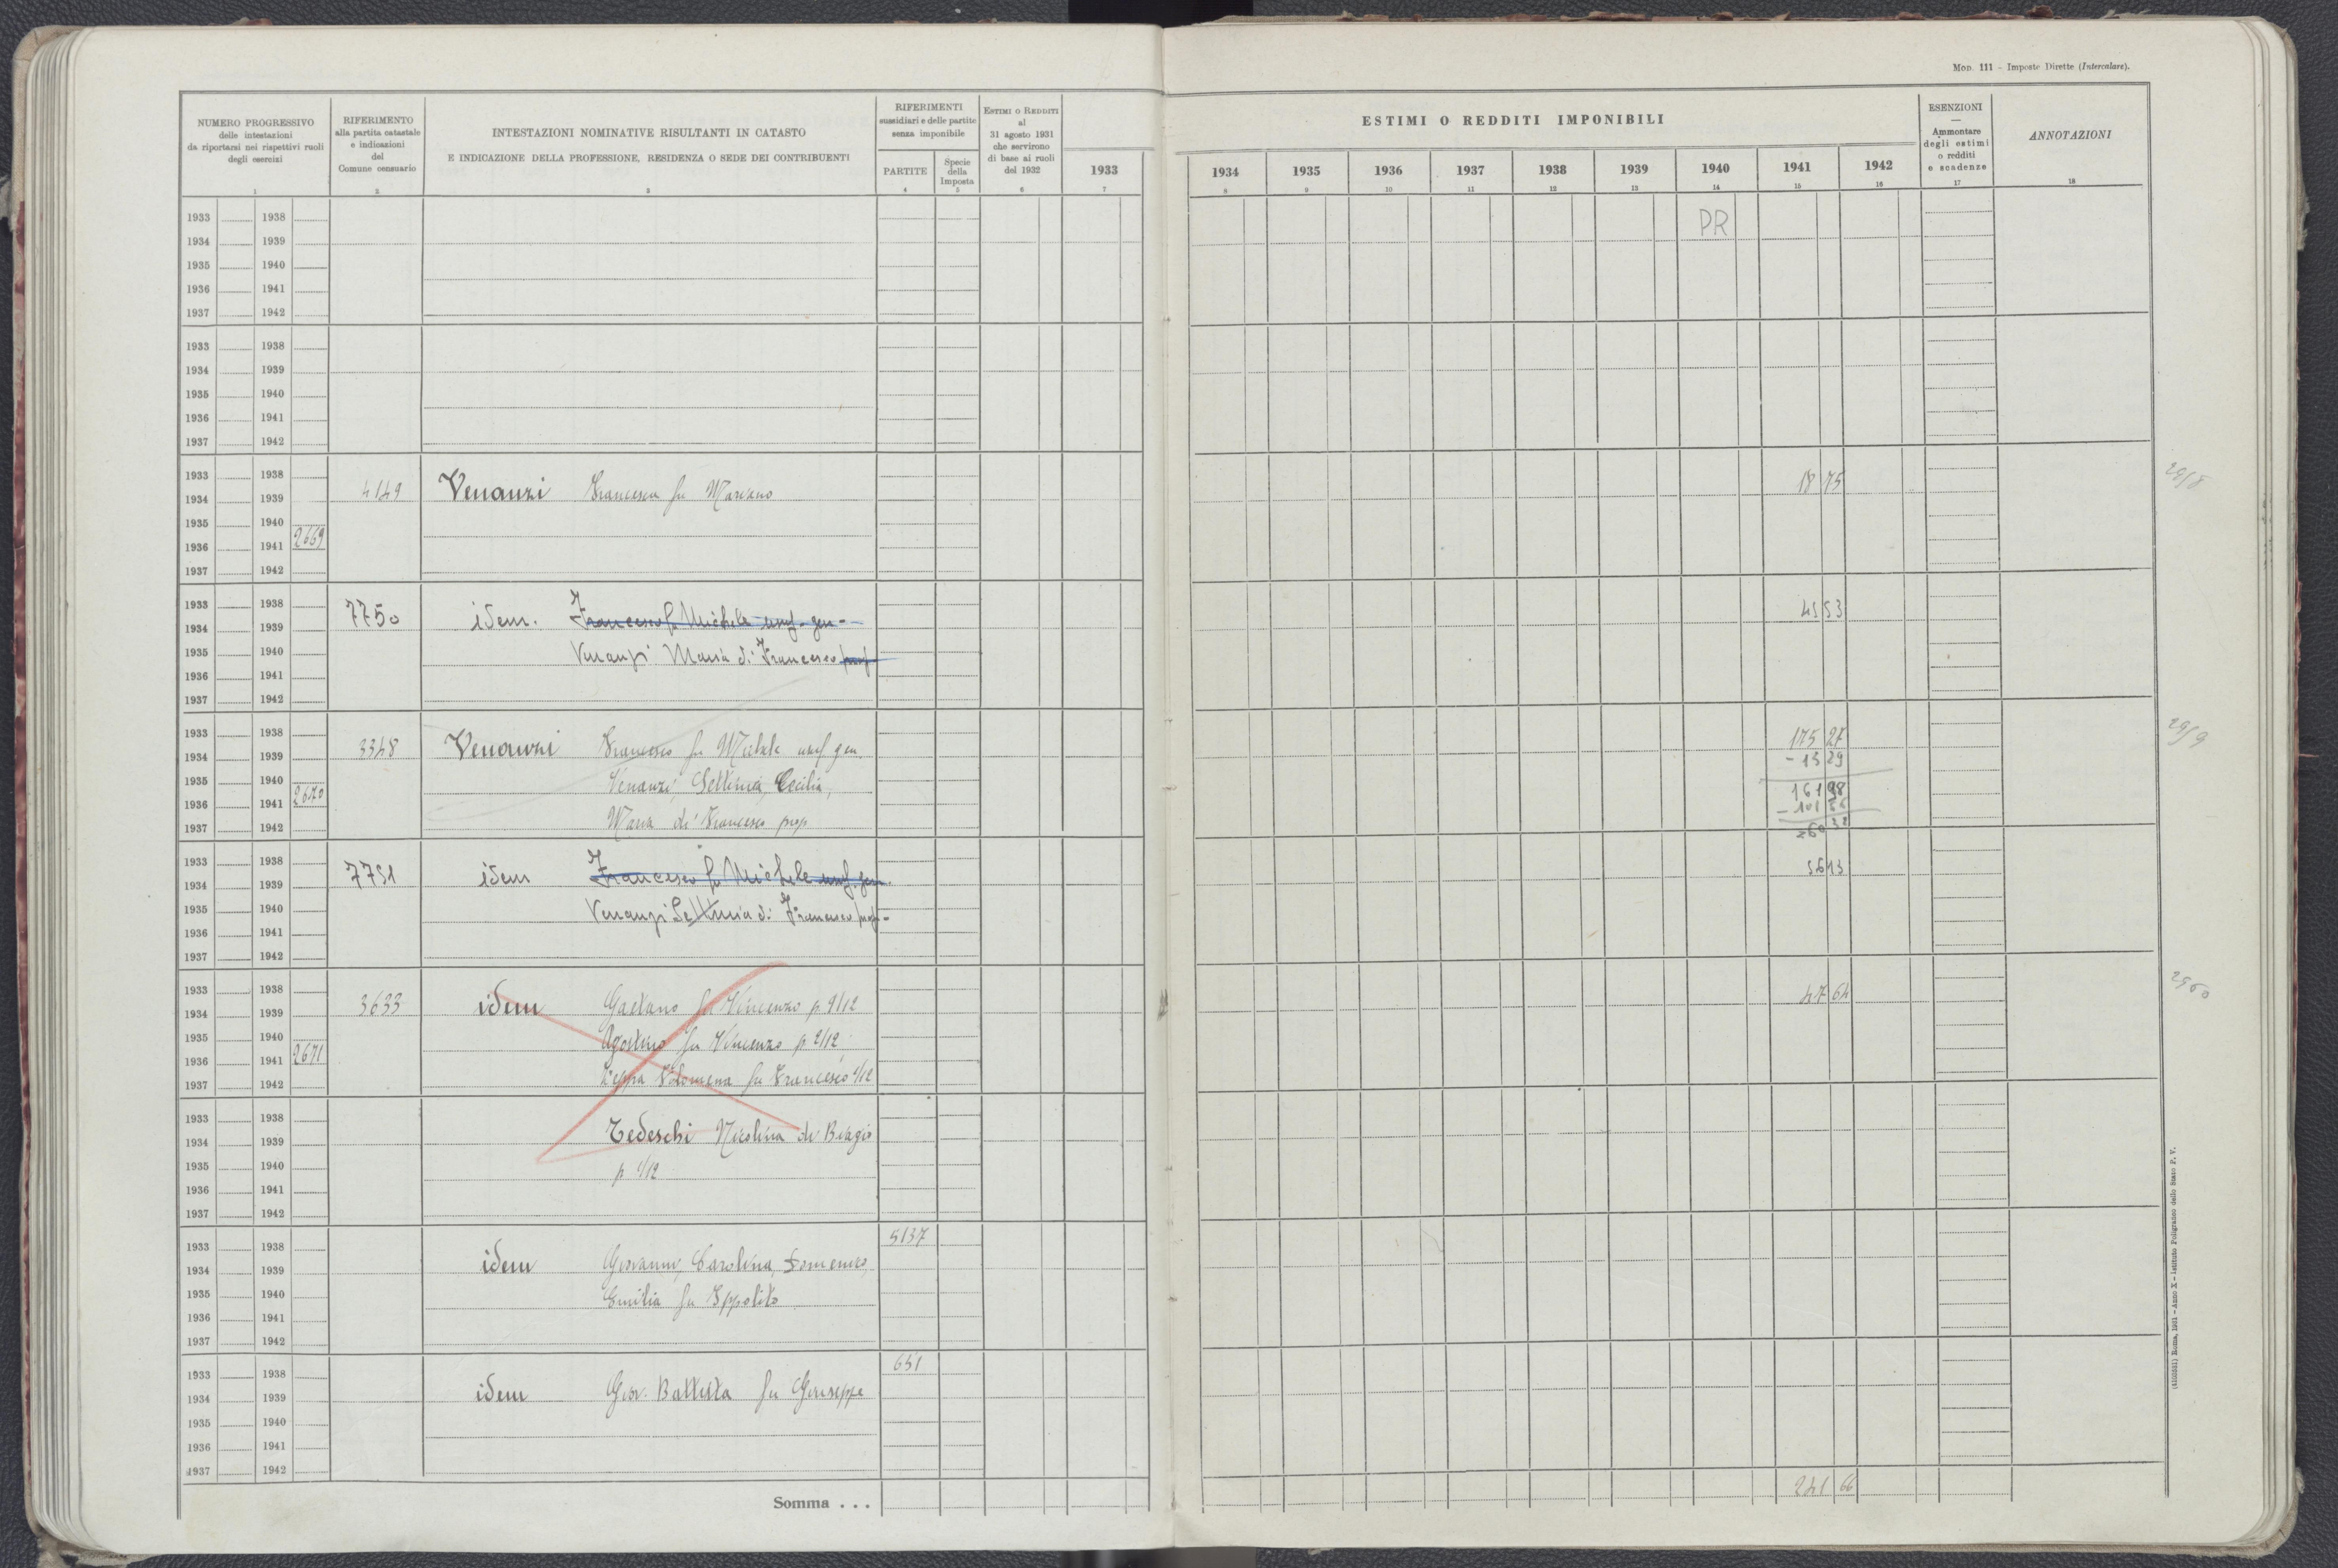 Mod. 111 - Imposte Dirette (Intercalare).
NUMERO PROGRESSIVO
delle intestazioni
da riportarsi nei rispettivi ruoli
degli esercizi
1
RIFERIMENTO
alla partita catastale
e indicazioni
del
Comune censuario
2
INTESTAZIONI NOMINATIVE RISULTANTI IN CATASTO
E INDICAZIONE DELLA PROFESSIONE, RESIDENZA O SEDE DEI CONTRIBUENTI
3
RIFERIMENTI
sussidiari e delle partite
senza imponibile
PARTITE
4
Specie
della
Imposta
5
ESTIMI O REDDITI
al
31 agosto 1931
che servirono
di base ai ruoli
del 1932
6
1933
7
ESTIMI O REDDITI IMPONIBILI
1934 1935 1936 1937 1938 1939 1940 1941 1942
8 9 10 11 12 13 14 15 16
ESENZIONI
—
Ammontare
degli estimi
o redditi
e scadenze
17
ANNOTAZIONI
18
1933 1938
PR
1934 1939
1935 1940
1936 1941
1937 1942
1933 1938
1934 1939
1935 1940
1936 1941
1937 1942
1933 1938
1934 1939 4149 Venanzi Francesca fu Mariano 18 75
1935 1940
1936 1941 2669
1937 1942
1933 1938
1934 1939 7750 idem. Francesco fu Michele usuf. gen- 45 53
1935 1940 Venanzi Maria di Francesco prop
1936 1941
1937 1942
1933 1938
1934 1939 3348 Venanzi Francesco fu Michele usuf gen. 175 27
- 13 29
1935 1940 Venanzi, Settimia, Cecilia, 161 98
1936 1941 2670
1937 1942 Maria di Francesco prop
1933 1938
1934 1939 7751 idem Francesco fu Michele usuf. gen. 56 13
1935 1940 Venanzi Settimia di Francesco prop-
1936 1941
1937 1942
1933 1938
1934 1939 3633 idem Gaetano fu Vincenzo p 9/12 47 64
1935 1940 Agostino fu Vincenzo p 2/12
1936 1941 2671
1937 1942 Filomena fu Francesco 1/12
1933 1938
1934 1939 Tedeschi Nicolina di Biagio
1935 1940 p 1/12
1936 1941
1937 1942
5137
1933 1938
1934 1939 idem Giovanni, Carolina, Domenico,
1935 1940 Emilia fu Ippolito
1936 1941
1937 1942
651
1933 1938
1934 1939 idem Giov. Battista fu Giuseppe
1935 1940
1936 1941
1937 1942
Somma . . . 241 66
2960
(4105031) Roma, 1931 - Anno X - Istituto Poligrafico dello Stato P. V.